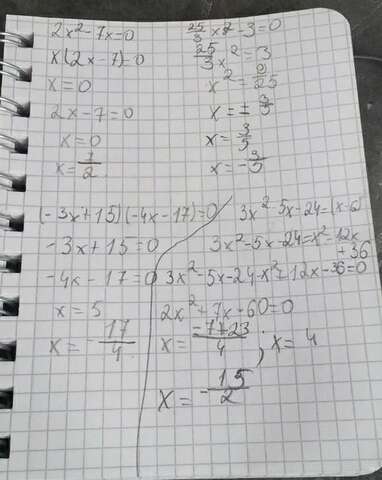 2x² - 7x = 0
x(2x - 7) = 0
x = 0
2x - 7 = 0
x = 0
x = 7/2
25/3 x² - 3 = 0
25/3 x² = 3
x² = 9/25
x = ± 3/5
x = 3/5
x = - 3/5
(-3x + 15)(-4x - 17) = 0
-3x + 15 = 0
-4x - 17 = 0
x = 5
x = - 17/4
3x² - 5x - 24 = (x - 6)
3x² - 5x - 24 = x² - 12x + 36
3x² - 5x - 24 - x² + 12x - 36 = 0
2x² + 7x - 60 = 0
x = -7±23/4 ; x = 4
x = - 15/2